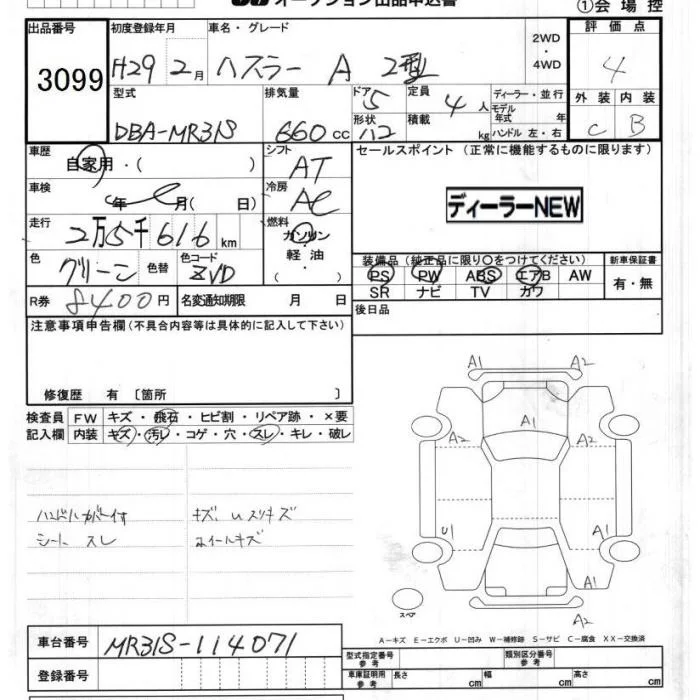 ①会場控
出品番号 初度登録年月 車名・グレード 2WD・4WD 評価点
3099 H29 2月 ハスラー A 2型 4
型式 排気量 ドア 5 定員 4人 ディーラー・並行 外装 内装
DBA-MR31S 660cc 形状 積載 kg モデル年式 年 ハンドル 左・右 C B
車歴 自家用・( ) シフト AT セールスポイント (正常に機能するものに限ります)
車検 年 月( 日) 冷房 AC
ディーラーNEW
走行 2万5千616km 燃料 ガソリン・軽油・( )
色 グリーン 色替 色コード ZVD
装備品(純正品に限り〇をつけてください) 新車保証書
PS PW ABS エアB AW 有・無
SR ナビ TV カワ
R券 8400円 名変通知期限 月 日
後日品
注意事項申告欄(不具合内容等は具体的に記入して下さい)
修復歴 有 〔箇所 〕
検査員 FW キズ・飛石・ヒビ割・リペア跡・×要
記入欄 内装 キズ・汚レ・コゲ・穴・スレ・キレ・破レ
ハンドルカバー付 キズ、Uスリキズ
シート スレ ホイールキズ
A1 A2
A1
A2 A2
U1 A1
A1
スペア
A2
A-キズ E-エクボ U-凹み W-補修跡 S-サビ C-腐食 XX-交換済
車台番号 MR31S-114071
型式指定番号 参考 類別区分番号 参考
登録番号
車庫証明用 参考 長さ cm 幅 cm 高さ cm